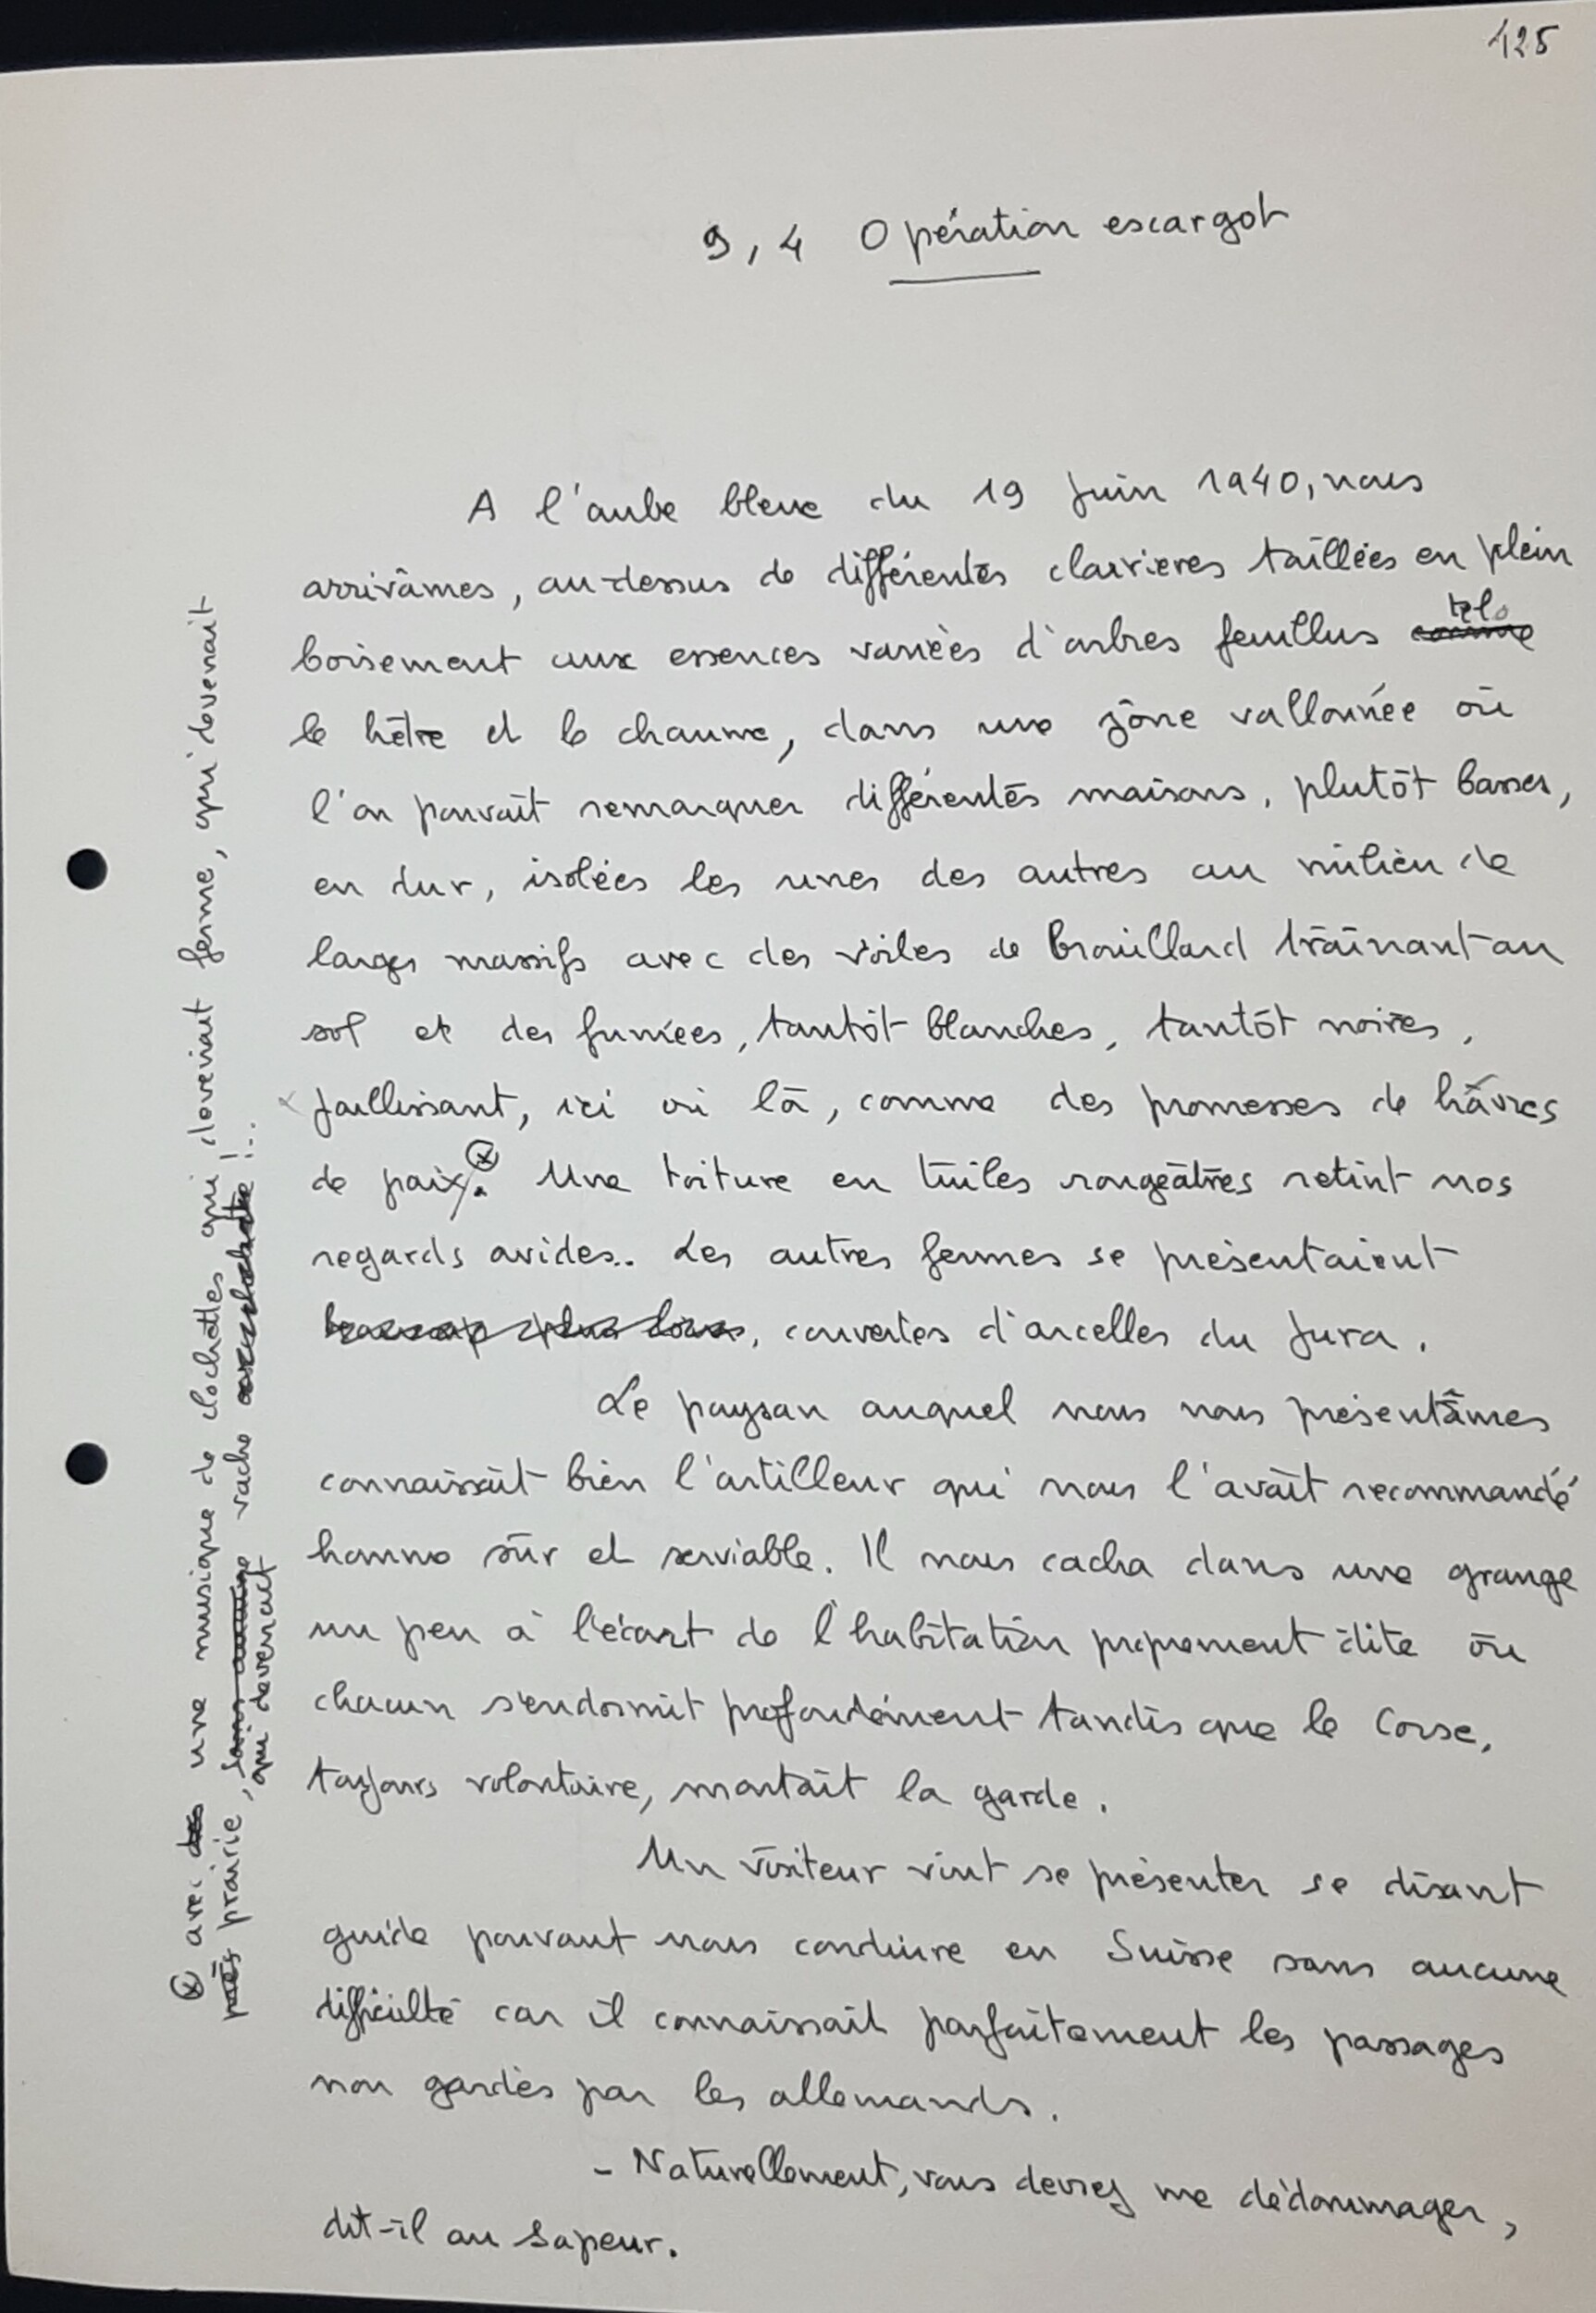 425
9, 4 Opération escargot
A l'aube bleue du 19 Juin 1940, nous
arrivâmes, au-dessus de différentes clairières taillées en plein
boisement aux essences variées d'arbres feuillus tels
le hêtre et le chaume, dans une zône vallonnée où
l'on pouvait remarquer différentes maisons, plutôt basses,
en dur, isolées les unes des autres au milieu de
larges massifs avec des voiles de brouillard traînant au
sol et des fumées, tantôt blanches, tantôt noires,
jaillissant, ici ou là, comme des promesses de hâvres
de paix. Une toiture en tuiles rougeâtres retint nos
regards avides.. Les autres fermes se présentaient
beaucoup plus loin, couvertes d'ancelles du Jura.
Le paysan auquel nous nous présentâmes
connaissait bien l'artilleur qui nous l'avait recommandé
homme sûr et serviable. Il nous cacha dans une grange
un peu à l'écart de l'habitation proprement dite où
chacun s'endormit profondément tandis que le Corse,
toujours volontaire, montait la garde.
Un visiteur vint se présenter se disant
guide pouvant nous conduire en Suisse sans aucune
difficulté car il connaissait parfaitement les passages
non gardés par les allemands.
- Naturellement, vous devrez me dédommager,
dit-il au Sapeur.
⊗ avec des une musique de clochettes qui devenait ferme, qui devenait
près prairie, qui devenait vache !..